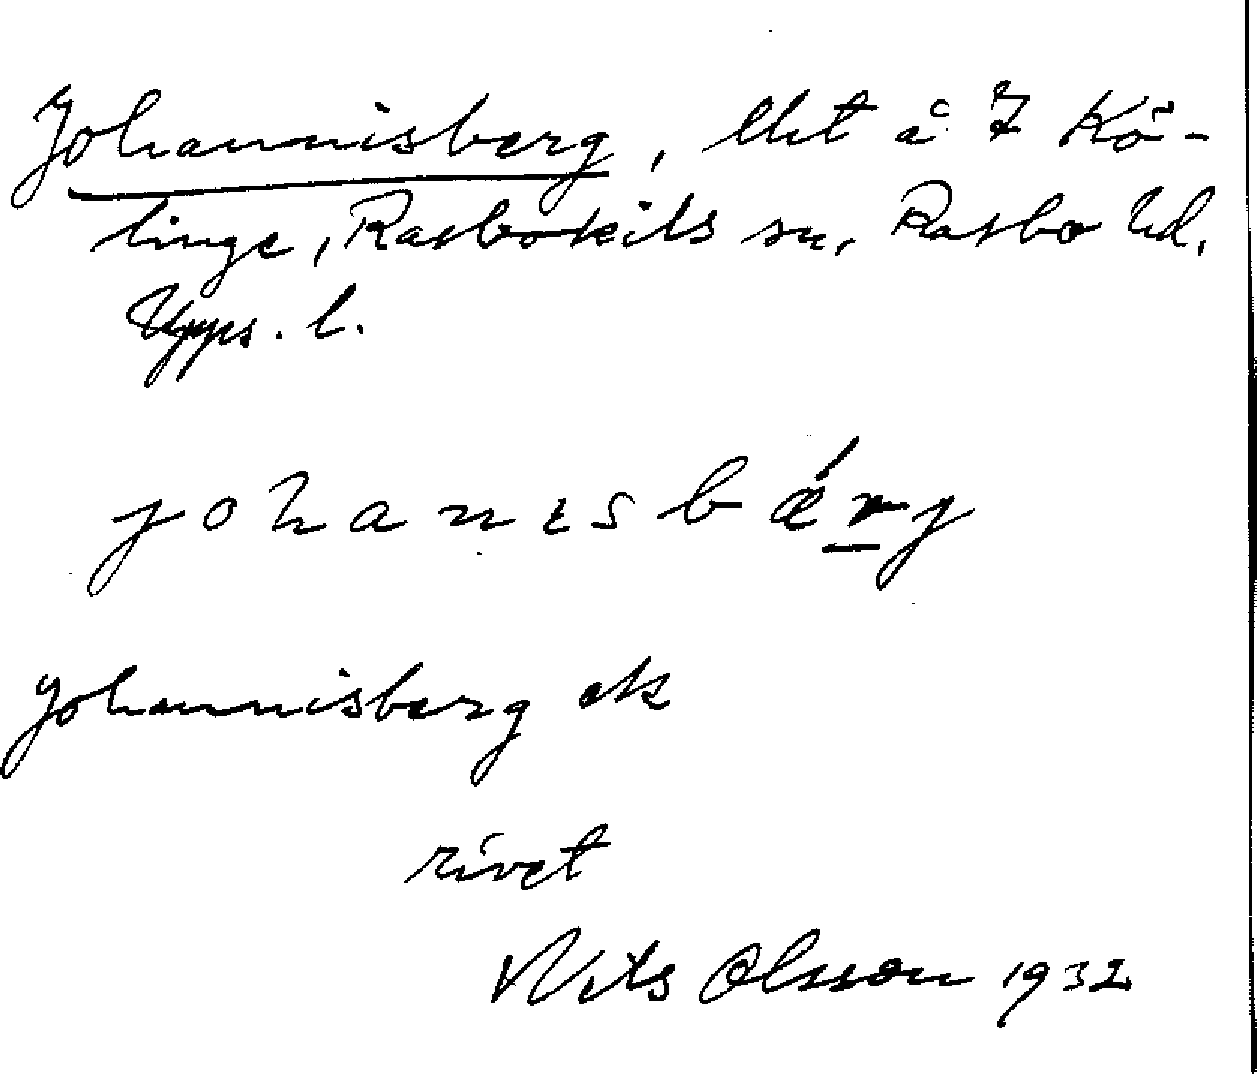 Johannisberg, lht å 7 Kö-
linge, Rasbokils sn, Rasbo hd.
Upps. l.
johanɪsbǽrj
Johannisberg ek
rivet
Nils Olsson 1932